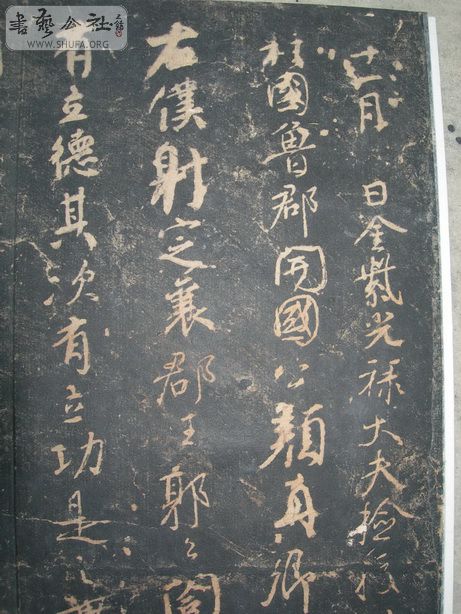 書藝公社
WWW.SHUFA.ORG
十一月 日金紫光祿大夫檢校
柱國魯郡開國公顏真卿
右僕射定襄郡王郭公閤
有立德其次有立功是之